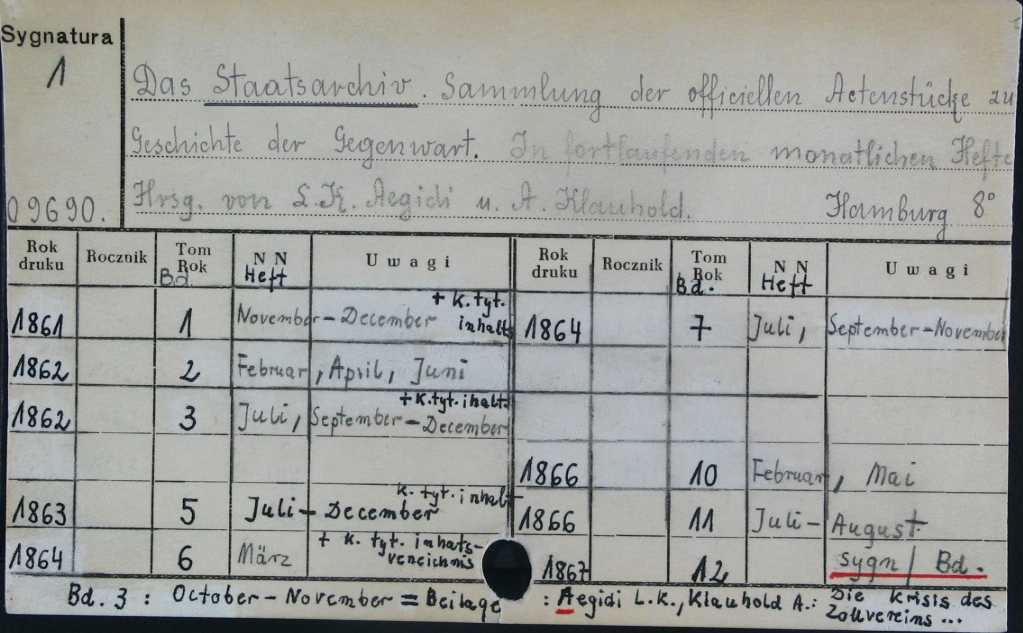 Sygnatura
1
Das Staatsarchiv. Sammlung der officiellen Actenstücke zu
Geschichte der Gegenwart. In fortlaufenden monatlichen Hefte
Hrsg. von L.K. Aegidi u. A. Klauhold. Hamburg 8°
09690.
Rok druku Rocznik Tom Rok Bd. N N Heft Uwagi Rok druku Rocznik Tom Rok Bd. N N Heft Uwagi
1861 1 November - December + k. tyt. inhalts 1864 7 Juli, September - November
1862 2 Februar, April, Juni
1862 3 Juli, September - December + k. tyt. ihalts
1866 10 Februar, Mai
1863 5 Juli - December k. tyt. inhalt 1866 11 Juli - August
1864 6 März + k. tyt. inhats- vereichnis 1867 12 sygn / Bd.
Bd. 3 : October - November = Beilage : Aegidi L.K., Klauhold A.: Die krisis des
Zollvereins ...